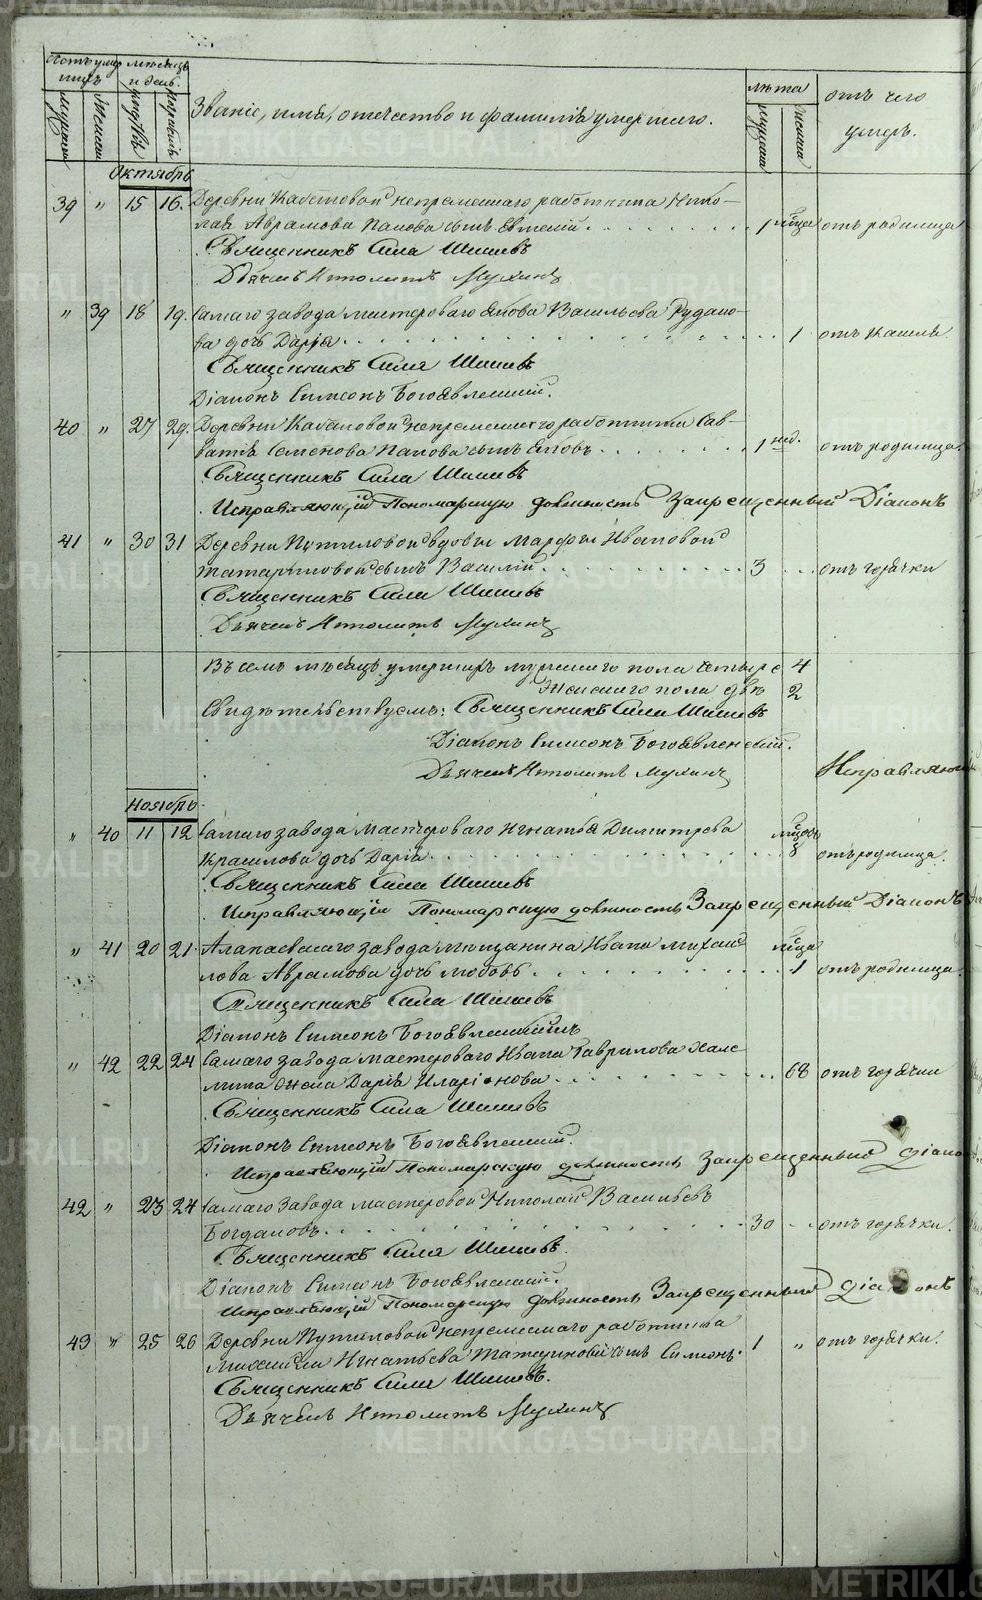 Счетъ умер мѣсяцъ
шихъ и день. лѣта отъ чего
мужеска женска смерти погребенія Званіе, имя, отчество и фамилія умершаго. мужеска женска умеръ.
Октябрь
39 " 15 16. Деревни Кабаковой непремѣннаго работника Нико-
лая Аврамова Панова сынъ Евгеній 1 мѣсяца отъ родимца
Священникъ Сила Шишевъ
Дьячекъ Ипполитъ Мухинъ
" 39 18 19. Самаго завода мастероваго Якова Васильева Рудако-
ва дочь Дарія 1 отъ кашля
Священникъ Сила Шишевъ
Діаконъ Симеонъ Богоявленскій.
40 " 27 29. Деревни Кабаковой непремѣннаго работника Сав-
ватія Семенова Панова сынъ Яковъ 1 нед. отъ родимца.
Священникъ Сила Шишевъ
Исправляющій Пономарскую должность Запрещенный Діаконъ
41 " 30 31 Деревни Путиловой вдовы Марфы Ивановой
Татариновой сынъ Василій 3 отъ горячки
Священникъ Сила Шишевъ
Дьячекъ Ипполитъ Мухинъ
Въ семъ мѣсяцѣ умершихъ мужескаго пола четыре 4
Женскаго пола двѣ 2
Свидѣтельствуемъ: Священникъ Сила Шишевъ
Діаконъ Симеонъ Богоявленскій.
Дьячекъ Ипполитъ Мухинъ Исправляющій
Ноябрь
" 40 11 12 Самаго завода мастероваго Игнатія Димитрева мѣсяцовъ
Красилова дочь Дарія 8 отъ родимца.
Священникъ Сила Шишевъ
Исправляющій Пономарскую должность Запрещенный Діаконъ
" 41 20 21. Алапаевскаго завода мѣщанина Ивана Михаи мѣсяца
лова Аврамова дочь Любовь 1 отъ родимца.
Священникъ Сила Шишевъ
Діаконъ Симеонъ Богоявленскій
" 42 22 24 Самаго завода мастероваго Ивана Гаврилова
жена Дарія Иларіонова 68 отъ горячки
Священникъ Сила Шишевъ
Діаконъ Симеонъ Богоявленскій.
Исправляющій Пономарскую должность Запрещенный Діако
42 " 23 24 Самаго Завода мастеровой Николай Васильевъ
Богдановъ 30 отъ горячки.
Священникъ Сила Шишевъ.
Діаконъ Симеонъ Богоявленскій.
Исправляющій Пономарскую должность Запрещенный Діаконъ
43 " 25 26 Деревни Путиловой непремѣннаго работника
Михаила Игнатьева Татаринова сынъ Симеонъ. 1 " отъ горячки.
Священникъ Сила Шишевъ.
Дьячекъ Ипполитъ Мухинъ
METRIKI.GASO-URAL.RU